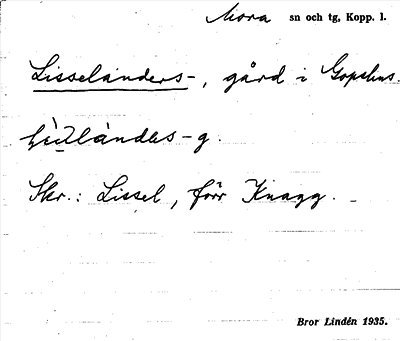 Mora sn och tg, Kopp. l.
Lisselanders-, gård i Gopshus.
-g.
Skr.: Lissel, förr Knagg.
Bror Lindén 1935.